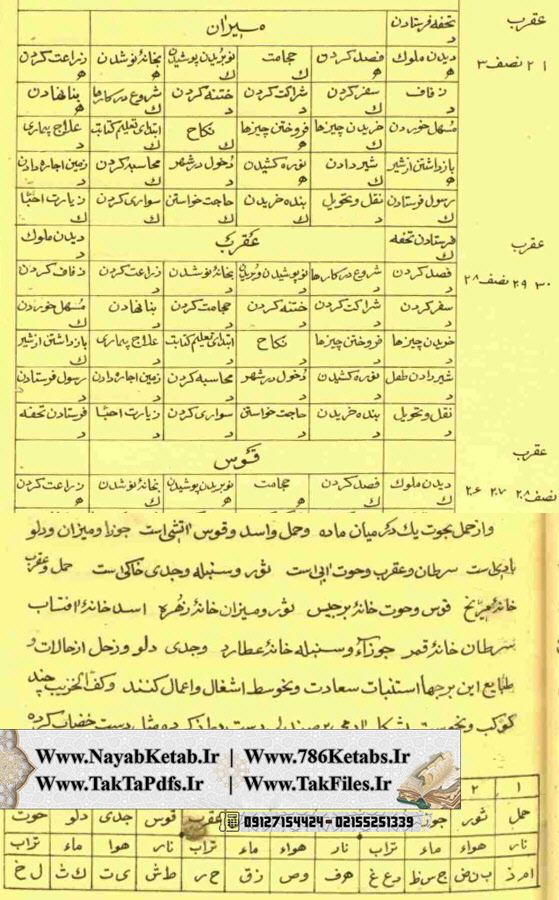 تحفه فرستادن د میزان عقرب
دیدن ملوک ه فصد کردن ه حجامت ک نو بریدن پوشیدن ک بخانهٔ نو شدن ه زراعت کردن ه ۲۱ نصف ۳
زفاف د سفر کردن ک شراکت کردن ک ختنه کردن د شروع در کارها ک بنا نهادن ه
مسهل خوردن د خریدن چیزها ک فروختن چیزها ک نکاح ک ابتدای تعلیم کتابت ک علاج بیماری د
باز داشتن از شیر د شیر دادن ک نوره کشیدن ه دخول در شهر د محاسبه کردن د زمین اجاره دادن د
رسول فرستادن ک نقل و تحویل د بنده خریدن ک حاجت خواستن د سواری کردن ک زیارت احبا ک
فرستادن تحفه ک عقرب دیدن ملوک د عقرب
فصد کردن د شروع در کارها د نو پوشیدن و بریدن د بخانهٔ نو شدن د زراعت کردن د زفاف کردن د ۳۰ ۲۹ نصف ۲۸
سفر کردن د شراکت کردن د ختنه کردن د حجامت کردن د بنا نهادن د مسهل خوردن ک
خریدن چیزها د فروختن چیزها د نکاح د ابتدای تعلیم کتابت د علاج بیماری د باز داشتن از شیر د
شیر دادن طفل د نوره کشیدن د دخول در شهر د محاسبه کردن د زمین اجاره دادن د رسول فرستادن د
نقل و تحویل د بنده خریدن د حاجت خواستن د سواری کردن د زیارت احبا د فرستادن تحفه د
قوس عقرب
دیدن ملوک ک فصد کردن ک حجامت ه نو بریدن پوشیدن ه بخانهٔ نو شدن ک زراعت کردن ه نصف ۲۸ ۲۷ ۲۶
و از حمل بحوت یك نر میان ماده و حمل و اسد و قوس اتشی است جوزا و میزان و دلو
بادی است سرطان و عقرب و حوت ابی است ثور و سنبله و جدی خاکی است حمل و عقرب
خانهٔ مریخ قوس و حوت خانهٔ برجیس ثور و میزان خانهٔ زهره اسد خانهٔ افتاب
سرطان خانهٔ قمر جوزا و سنبله خانهٔ عطارد و جدی دلو و زحل از حالات و
طبایع این برجها استنبات سعادت و نحوسط اشغال و اعمال کنند و کف الخزیب چند
کوکب
Www.NayabKetab.Ir | Www.786Ketabs.Ir
Www.TakTaPdfs.Ir | Www.TakFiles.Ir
09127154424 - 02155251339
۱ ۲
حمل ثور جوز عقرب قوس جدی دلو حوت
نار هواء ماء تراب نار هواء ماء تراب نار هوا ماء تراب